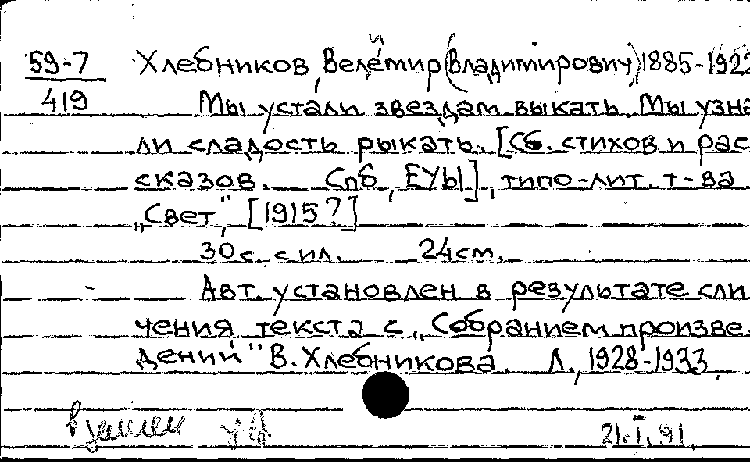 59-7 Хлебников, Велемир (Владимирович) 1885-1922
419 Мы устали звездам выкать. Мы узна
ли сладость рыкать. [Сб. стихов и рас
сказов. Спб, ЕУЫ], типо-лит. т-ва
„Свет", [1915?]
30 с. с ил. 24 см.
Авт. установлен в результате сли
чения текста с „Собранием произве
дений" В. Хлебникова. Л., 1928-1933.
21.I.91.